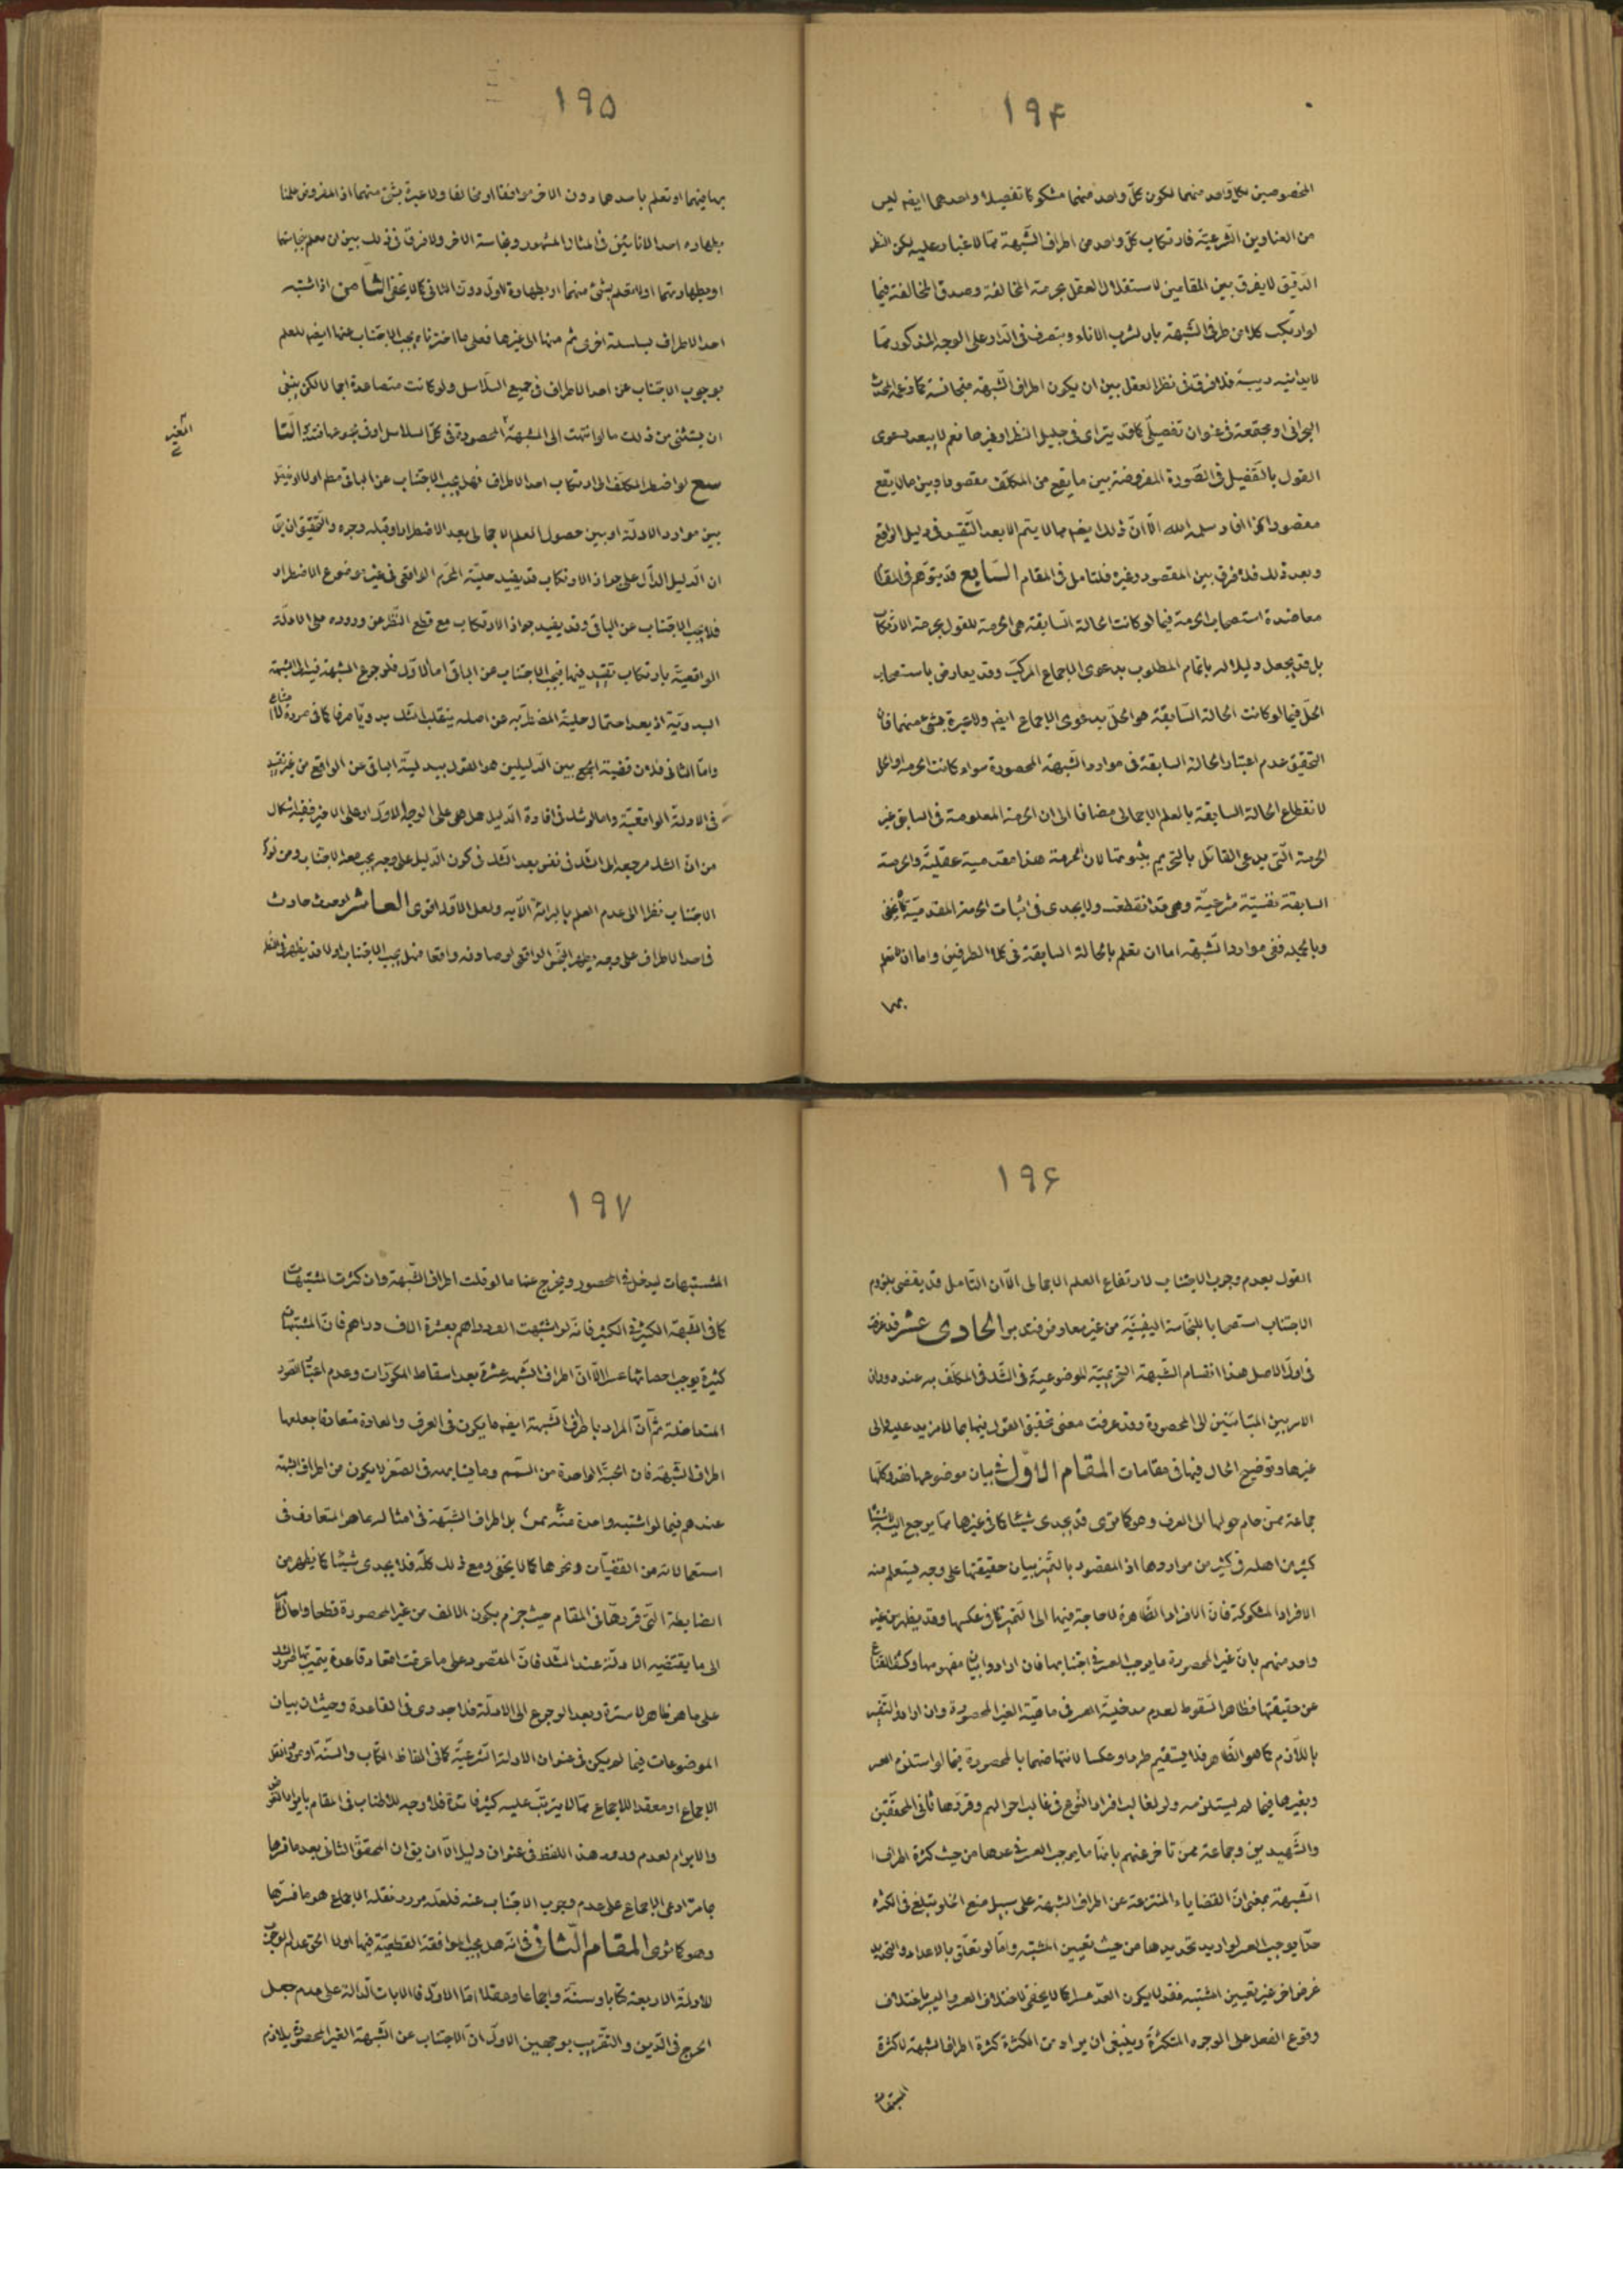 ١٩۴
المخصوصين بكل واحد منهما لكون كلّ واحد منهما مشكوكا تفصيلا واحدهما ايضه ليس
من العناوين الشرعيّة فارتكاب كلّ واحد من اطراف الشّبهة ممّا لا غبار عليه لكن النظر
الدّقيق لا يفرق بين المقامين لاستقلال العقل بحرمة المخالفة وصدق المخالفة فيما
لو ارتكب كلا من طرفى الشّبهة بان شرب الاناء وتصرف فى الدّار على الوجه المذكور ممّا
لا يدانيه ريبة فلا فرق فى نظر العقل بين ان يكون اطراف الشّبهة متجانسة كما زعمه المحدث
البحرانى او مجتمعة فى عنوان تفصيلّى كما قد يترائ فى جليل النظر او غيرهما نعم لا يبعد دعوى
القول بالتفصيل فى الصّورة المفروضة بين ما يقع من المكلّف مقصودا وبين ما لا يقع
مقصودا كما افاد سلمه الله الّا انّ ذلك ايضه مما لا يتم الا بعد التّقييد فى دليل الواقع
وبعد ذلك فلا فرق بين المقصود وغيره فلتامل فى المقام السّابع قد يتوّهم فى المقام
معاضدة استصحاب الحرمة فيما لو كانت الحالة السّابقة هى الحرمة للقول بحرمة الارتكاب
بل قد يجعل دليلا له باتمام المطلوب بدعوى الاجماع المركّب وقد يعارض باستصحاب
الحلّ فيما لو كانت الحالة السّابقة هو الحلّ بدعوى الاجماع ايضه ولا عبرة بشئ منهما فان
التحقيق عدم اعتبار الحالة السابقة فى موارد الشّبهة المحصورة سواء كانت الحرمة او الحل
لانقطاع الحالة السابقة بالعلم الاجمالى مضافا الى ان الحرمة المعلومة فى السابق غير
الحرمة الّتى يدعى القائل بالتحريم بثبوتها لان الحرمة هنا مقدمية عقليّة والحرمة
السابقة نفسيّة شرعيّة وهى قد انقطعت ولا يجدى فى اثبات الحرمة المقدميّة كما لا يخفى
وبالجملة ففى موارد الشّبهة اما ان نعلم بالحالة السابقة فى كلا الطرفين واما ان لا نعلم
بها
١٩۵
بها فيهما او نعلم باحدهما دون الاخر موافقا او مخالفا ولا عبرة بشئ منهما اذ المفروض علمنا
بطهارة احد الانائين فى المثال المشهور ونجاسة الاخر ولا فرق فى ذلك بين ان نعلم بنجاستهما
او بطهارتهما او لا نعلم بشئ منهما او بطهارة الاول دون الثانى كما لا يخفى الثّامن اذا اشتبه
احد الاطراف بسلسلة اخرى ثم منها الى غيرها فعلى ما اخترناه يجب الاجتناب عنها ايضه للعلم
بوجوب الاجتناب عن احد الاطراف فى جميع السلاسل ولو كانت متصاعدة اجمالا لكن ينبغى
ان يستثنى من ذلك ما لو انتهت الى الشّبهة المحصورة فى كلّ السلاسل او فى مجموعها فتدبر التّا
الغير
سع لو اضطر المكلف الى ارتكاب احد الاطراف فهل يجب الاجتناب عن الباقى مطم اولا او يفصل
بين موارد الادلّة او بين حصول العلم الاجمالى بعد الاضطرار او قبله وجوه والتّحقيق ان يق
ان الدّليل الدّال على جواز الارتكاب قد يفيد حليّة الحرّم الواقعى فى غير موضوع الاضطرار
فلا يجب الاجتناب عن الباقى وقد يفيد جواز الارتكاب مع قطع النّظر عن وروده على الادلّة
الواقعيّة بارتكاب تقييد فيها فيجب الاجتناب عن الباقى اما الاوّل فلرجوع الشبهة فيه الى الشبهة
البدويّة اذ بعد احتمال حلية المضطرّ به عن اصله ينقلب الشك بدويّا صرفا كما فى صورة
وامّا الثانى فلان قضيّة الجمع بين الدّليلين هو القول ببدليّة الباقى عن الواقع من غير تقييد
فى الادلة الواقعيّة واما لو شك فى افادة الدّليل هل هى على الوجه الاوّل او على الاخير ففيه اشكال
من انّ الشك مرجعه الى الشّك فى نفس بعد الشّك فى كون الدّليل على وجه يجب معه الاجتناب ومن ترك
الاجتناب نظرا الى عدم العلم بالبرائة الّا به ولعل الاوّل اقوى العاشر لو حدث حادث
فى احد الاطراف على وجه يطهر النّجس الواقعى لو صادفه واقعا فهل يجب الاجتناب او لا قد يظهر فى النظر
١٩۶
القول بعدم وجوب الاجتناب لارتفاع العلم الاجمالى الّا ان التأمل قد يقضى بلزوم
الاجتناب استصحابا للنجاسة اليقينيّة من غير معارض فتدبر الحادى عشر قد عرفت
فى اول الاصل هذا انقسام الشّبهة التحريميّة الموضوعيّة فى الشّك فى المكلّف به عند دوران
الامر بين المتباينين الى المحصورة وقد عرفت معنى تحقيق القول فيها بما لا مزيد عليه والى
غيرها وتوضيح الحال فيها فى مقامات المقام الاوّل فى بيان موضوعها فقد وكلها
جماعة ممّن حام حولها الى العرف وهو كما ترى قد يجدى شيئا كما فى غيرها ممّا يرجع اليه
كثير من اهله فى كثير من مواردها اذ المقصود بالتّميز بيان حقيقتها على وجه يستعلم منه
الافراد المشكوكة فانّ الافراد الظّاهرة لا حاجة فيها الى التّميز كما فى عكسها وقد يظهر من غير
واحد منهم بانّ غير المحصورة ما يوجب العسر فى اجتنابها فان ارادوا بيان مفهومها وكشف القناع
عن حقيقتها فظاهر السّقوط لعدم مدخليّة العسر فى ماهيّة الغير المحصورة وان ارادوا التّفسير
باللّازم كما هو الظّاهر فلا يستقيم طردا وعكسا لانتقاضهما بالمحصورة فيما لو استلزم العسر
وبغيرها فيما لم يستلزمه ولو لغالب افراد النوع فى غالب احوالهم وقررّها ثانى المحقّقين
والشّهيدين وجماعة ممّن تاخر عنهم بانّها ما يوجب العسر فى عدها من حيث كثرة اطراف
الشّبهة بمعنى انّ القضاياء المنتزعة عن اطراف الشبهة على سبيل منع الخلو تبلغ فى الكثره
حدّا يوجب العسر لو اريد تحديدها من حيث تعيين المشتبه وامّا لو تعلّق بالاعداد والتحديد
غرض اخر غير تعيين المشتبه فقد لا يكون العدّ عسرا كما لا يخفى لاختلاف العسر واليسر باختلاف
وقوع الفعل على الوجوه المتكثرة وينبغى ان يراد من الكثرة كثرة اطراف الشبهة لا كثرة
المشتبهات
١٩٧
المشتبهات ليدخل فى المحصور ويخرج عنها ما لو قلت اطراف الشّبهة وان كثرت المشتبهات
كما فى الشبهة الكثير فى الكثير فانّه لو اشتبهت الف دراهم بعشرة الاف دراهم فانّ المشتبهات
كثيرة يوجب احصائها عسرا الّا انّ اطراف الشّبهة عشرة بعد اسقاط المكرّرات وعدم اعتبار الصّور
المتداخلة ثمّ انّ المراد باطراف الشّبهة ايضه ما يكون فى العرف والعادة متعارفا جعلها
اطراف الشّبهة فان الحبّة الواحدة من السّمسم وما يشابهه فى الصّغر لا يكون من اطراف الشبهة
عندهم فيما لو اشتبه واحدة منه بمن بل اطراف الشّبهة فى امثاله ما هو المتعارف فى
استعمالاته من القضيّات ونحوها كما لا يخفى ومع ذلك كلّه فلا يجدى شيئا كما يظهر من
الضابطة الّتى قررهّا فى المقام حيث جزم بكون الالف من غير المحصورة قطعا واحال
الى ما يقتضيه الادلّة عند الشّك فانّ المقصود على ما عرفت انعقاد قاعدة يتميّز بها موارد الشّك
على ما هو ظاهر لا سترة وبعد الرجوع الى الادلّة فلا جدوى فى القاعدة وحيث ان بيان
الموضوعات فيما لم يكن فى عنوان الادلة الشّرعيّة كما فى الفاظ الكتاب والسّنّة او مورد نقل
الاجماع او معقد الاجماع ممّا لا يترتّب عليه كثير فائدة فلا وجه للاطناب فى المقام بايراد النّقض
والابرام لعدم ورود هذا اللفظ فى عنوان دليل الّا ان يق ان المحقق الثانى بعد ما فسّرها
بما مرّ ادعى الاجماع على عدم وجوب الاجتناب عنه فلعلّه مورد نقله الاجماع هو ما فسّرها
وهو كما ترى المقام الثّانى فى انّه هل يجب الموافقة القطعيّة فيها اولا الحق عدم الوجوب
للادلّة الاربعة كتابا وسنّة واجماعا وعقلا امّا الاوّل فالايات الدّالة على عدم جعل
الحرج فى الدّين والتقريب بوجهين الاوّل انّ الاجتناب عن الشّبهة الغير المحصورة يلازم